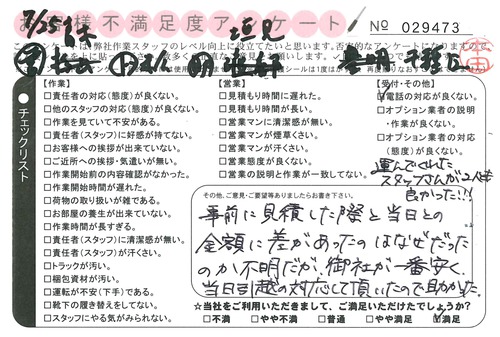 7/25
お客様不満足度アンケート
No 029473
このアンケートは、弊社作業スタッフのレベル向上に役立てたいと思います。否定的なアンケートになりますので、
チェックリスト
【作業】
□責任者の対応(態度)が良くない。
□他のスタッフの対応(態度)が良くない。
□作業を見ていて不安がある。
□責任者(スタッフ)に好感が持てない。
□お客様への挨拶が出来ていない。
□ご近所への挨拶・気遣いが無い。
□作業開始前の内容確認がなかった。
□作業開始時間が遅れた。
□荷物の取り扱いが雑である。
□お部屋の養生が出来ていない。
□作業時間が長すぎる。
□責任者(スタッフ)に清潔感が無い。
□責任者(スタッフ)が汗くさい。
□トラックが汚い。
□梱包資材が汚い。
□運転が不安(下手)である。
□靴下の履き替えをしてない。
□スタッフにやる気がみられない。
【営業】
□見積もり時間が長い。
□見積もり時間に遅れた。
□営業マンに清潔感が無い。
□営業マンが煙草くさい。
□営業マンが汗くさい。
□営業態度が良くない。
□営業の説明と作業が一致してない。
【受付・その他】
□電話の対応が良くない。
□オプション業者の説明
・作業が良くない。
□オプション業者の対応
(態度)が良くない。
運んでくれた
スタッフさんが2人とも
良かった!!!
その他、ご意見・ご要望等ありましたらお書き下さい。
事前に見積した際と当日との
金額に差があったのはなぜだった
のか不明だが、御社が一番安く、
当日引越の対応して頂いたので助かった。
☆当社をご利用いただきまして、ご満足いただけたでしょうか?
□不満 □やや不満 □普通 □やや満足 □満足